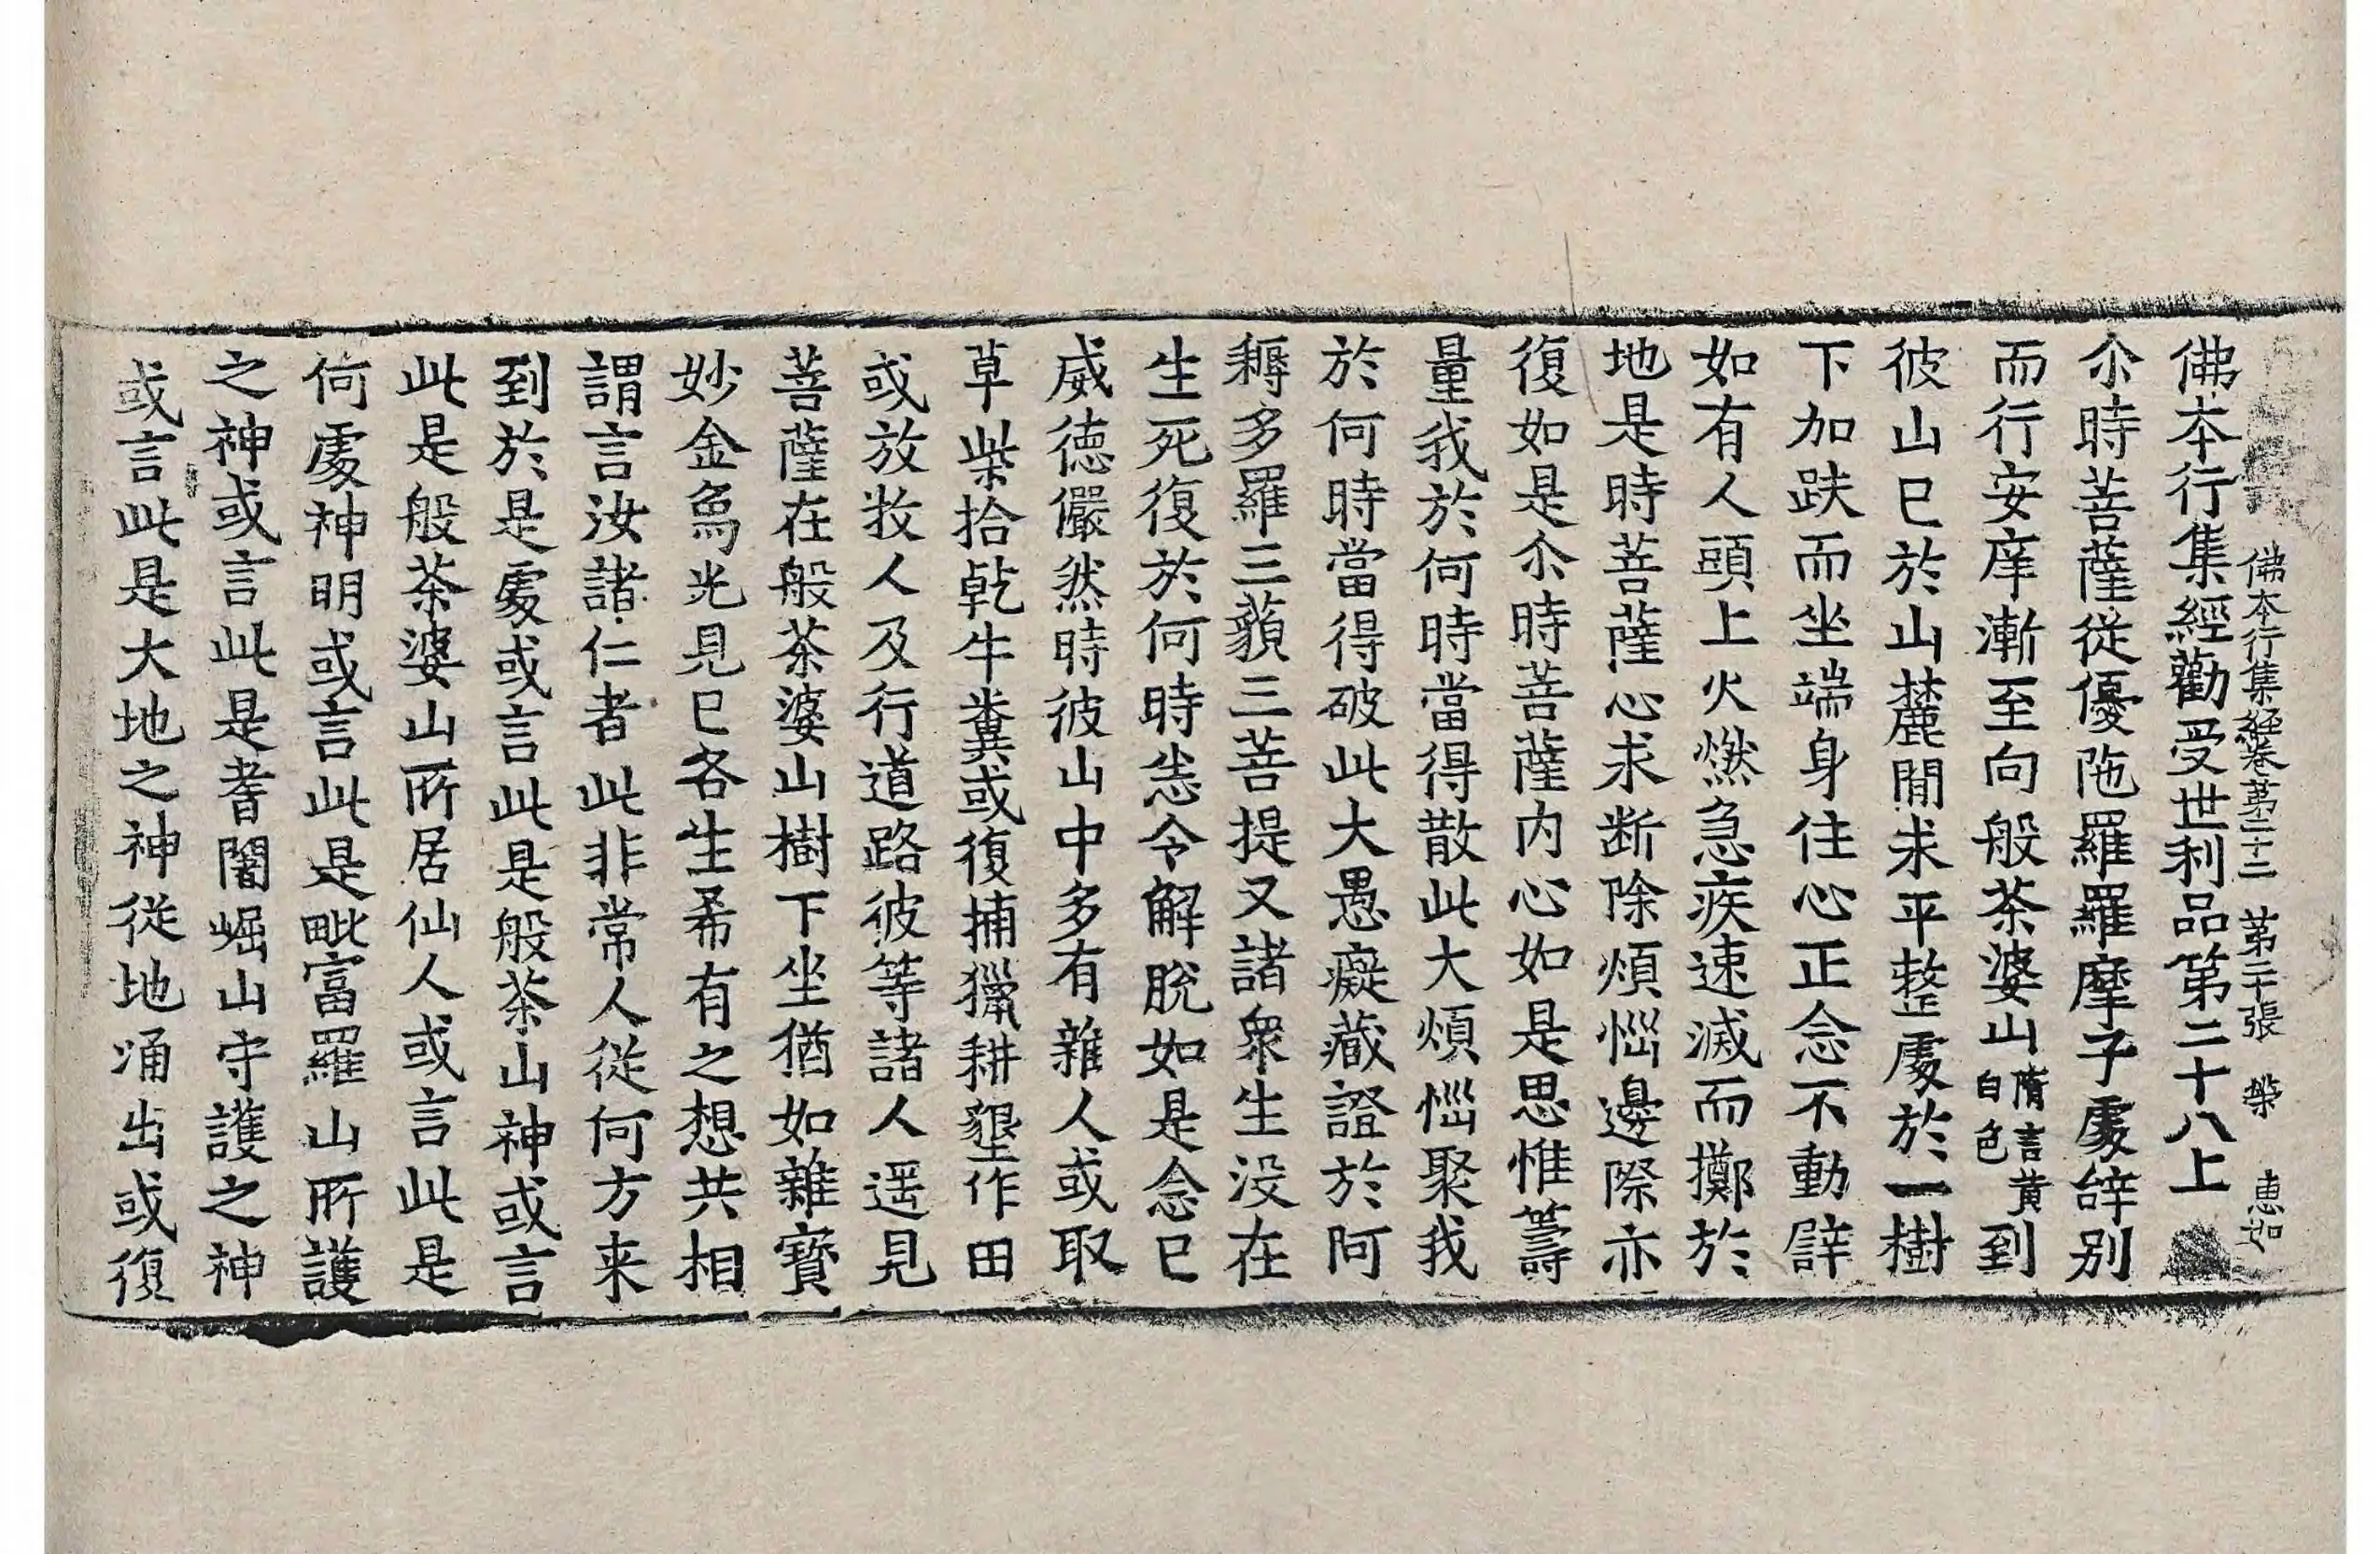 佛本行集經卷第二十二 第二十張 槃 惠如
佛本行集經勸受世利品第二十八上
尒時菩薩從優陁羅羅摩子處辞别
而行安庠漸至向般茶婆山隋言黄白色到
彼山已於山麓閒求平整處於一樹
下加趺而坐端身住心正念不動譬
如有人頭上火燃急疾速滅而擲於
地是時菩薩心求断除煩惱邊際亦
復如是尒時菩薩内心如是思惟籌
量我於何時當得散此大煩惱聚我
於何時當得破此大愚癡藏證於阿
耨多羅三藐三菩提又諸衆生没在
生死復於何時㤀令解脫如是念已
威德儼然時彼山中多有雜人或取
草柴拾乾牛糞或復捕獵耕墾作田
或放牧人及行道路彼等諸人遥見
菩薩在般茶婆山樹下坐猶如雜寶
妙金爲光見已各生希有之想共相
謂言汝諸仁者此非常人從何方来
到於是處或言此是般茶山神或言
此是般茶婆山所居仙人或言此是
何處神明或言此是毗富羅山所護
之神或言此是耆闍崛山守護之神
或言此是大地之神從地涌出或復